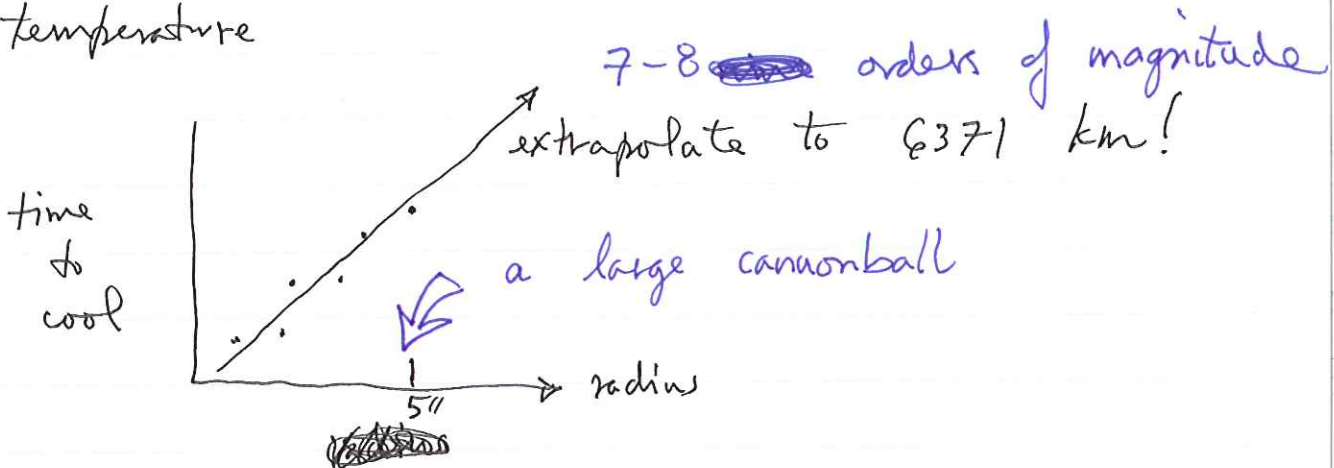 temperature
7-8 orders of magnitude
extrapolate to 6371 km!
time
to
cool
a large cannonball
radius
5"